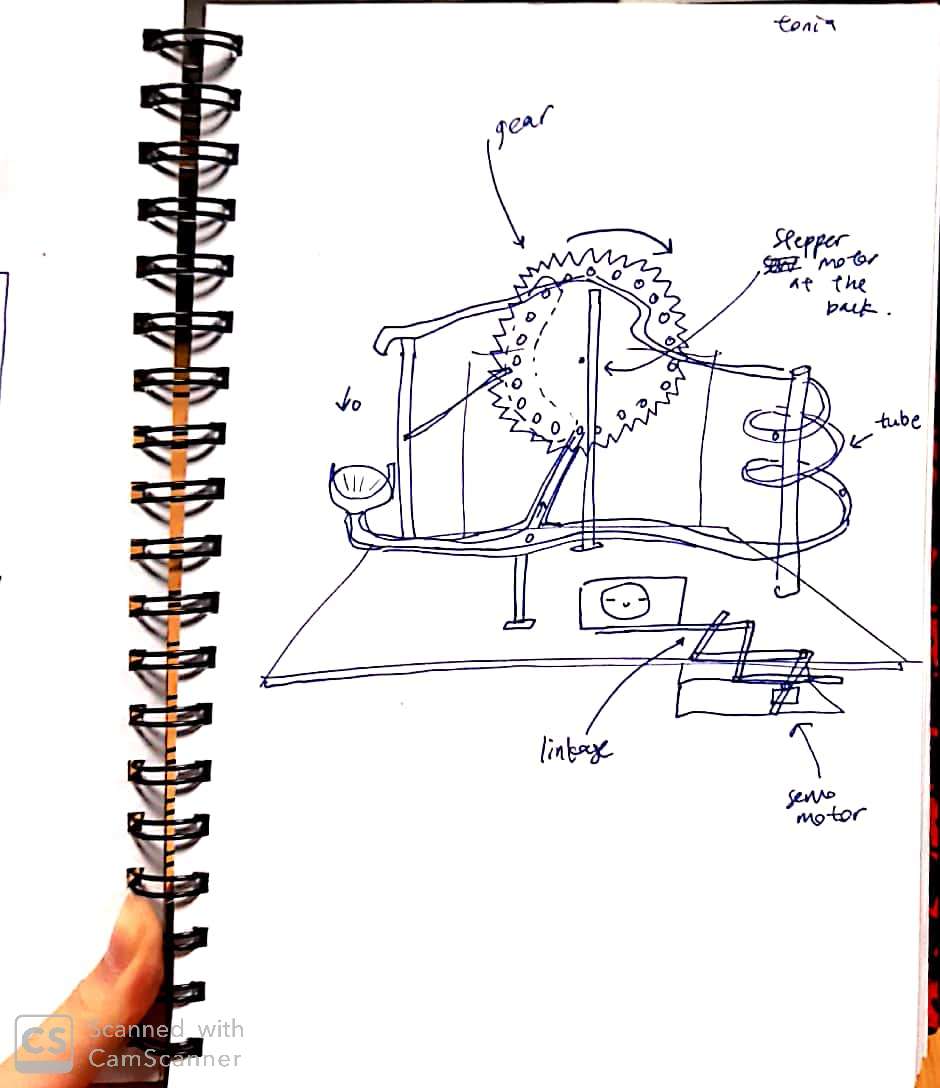 tonia
gear
Stepper
motor
at the
back.
tube
linkage
servo
motor
CS
Scanned with
CamScanner